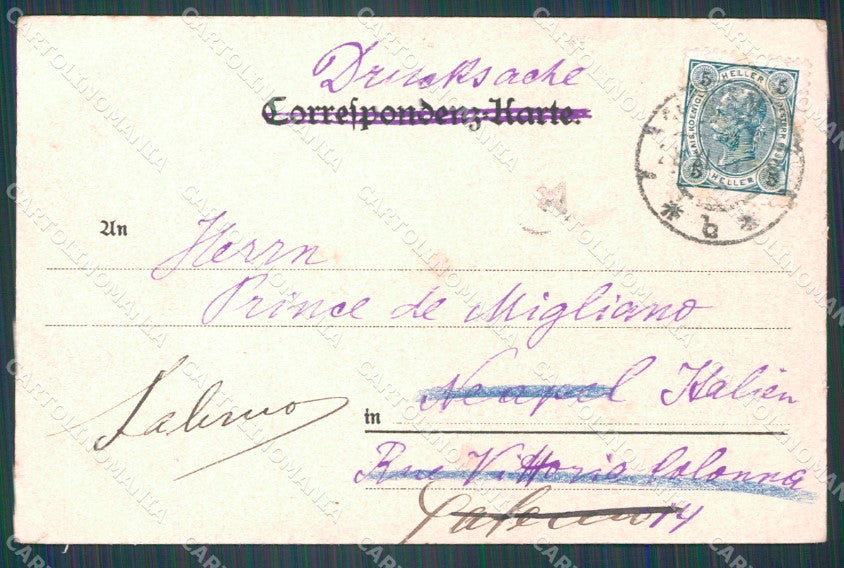 Drucksache
Correspondenz-Karte.
5 HELLER 5
KAIS. KOENIGL.
5 HELLER 5
b
An Herrn
Prince de Migliano
Neapel Italien
Salerno
in
Rue Vittoria Colonna
Palermo 14
CARTOLINOMANIA